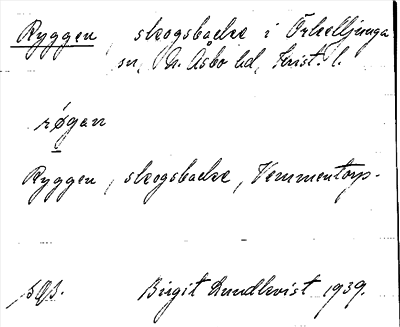 Ryggen, skogsbacke i Örkelljunga
sn, N. Åsbo hd, Krist. l.
røgen
Ryggen, skogsbacke, Vemmentorp.
Birgit Lundkvist 1939.